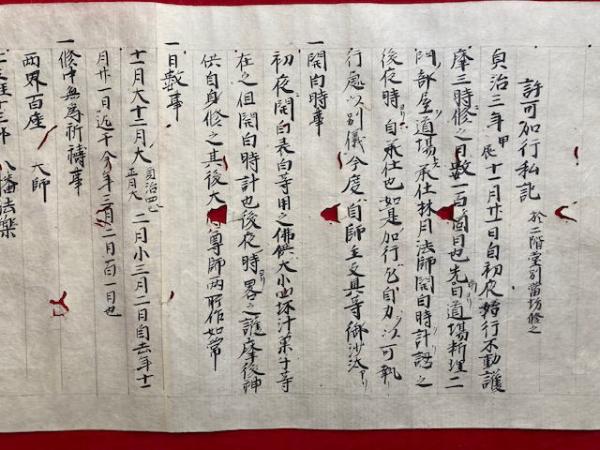 許可加行私記 於二階堂別當坊修之
貞治三年甲辰十一月廿一日自初夜始行不動護
摩三時修之日数一百箇日也先自道場料理二
門部屋道場承仕林月法師開白時計誂之
後夜時自承仕也如是加行乞自力以可執
行處以別儀今度自師主文具等御沙汰
一開白時事
初夜開白表白等用之佛供大小四坏汁菓子等
在之但開白時計也後夜時畧之護摩後神
供自身修之其後大尊師両所作如常
一日数事
十一月大十二月大貞治四正月大二月小三月二日自去年十一
月廿一日迄于今年三月二日百一日也
一修中無為祈禱事
両界百座 大師
八幡法樂